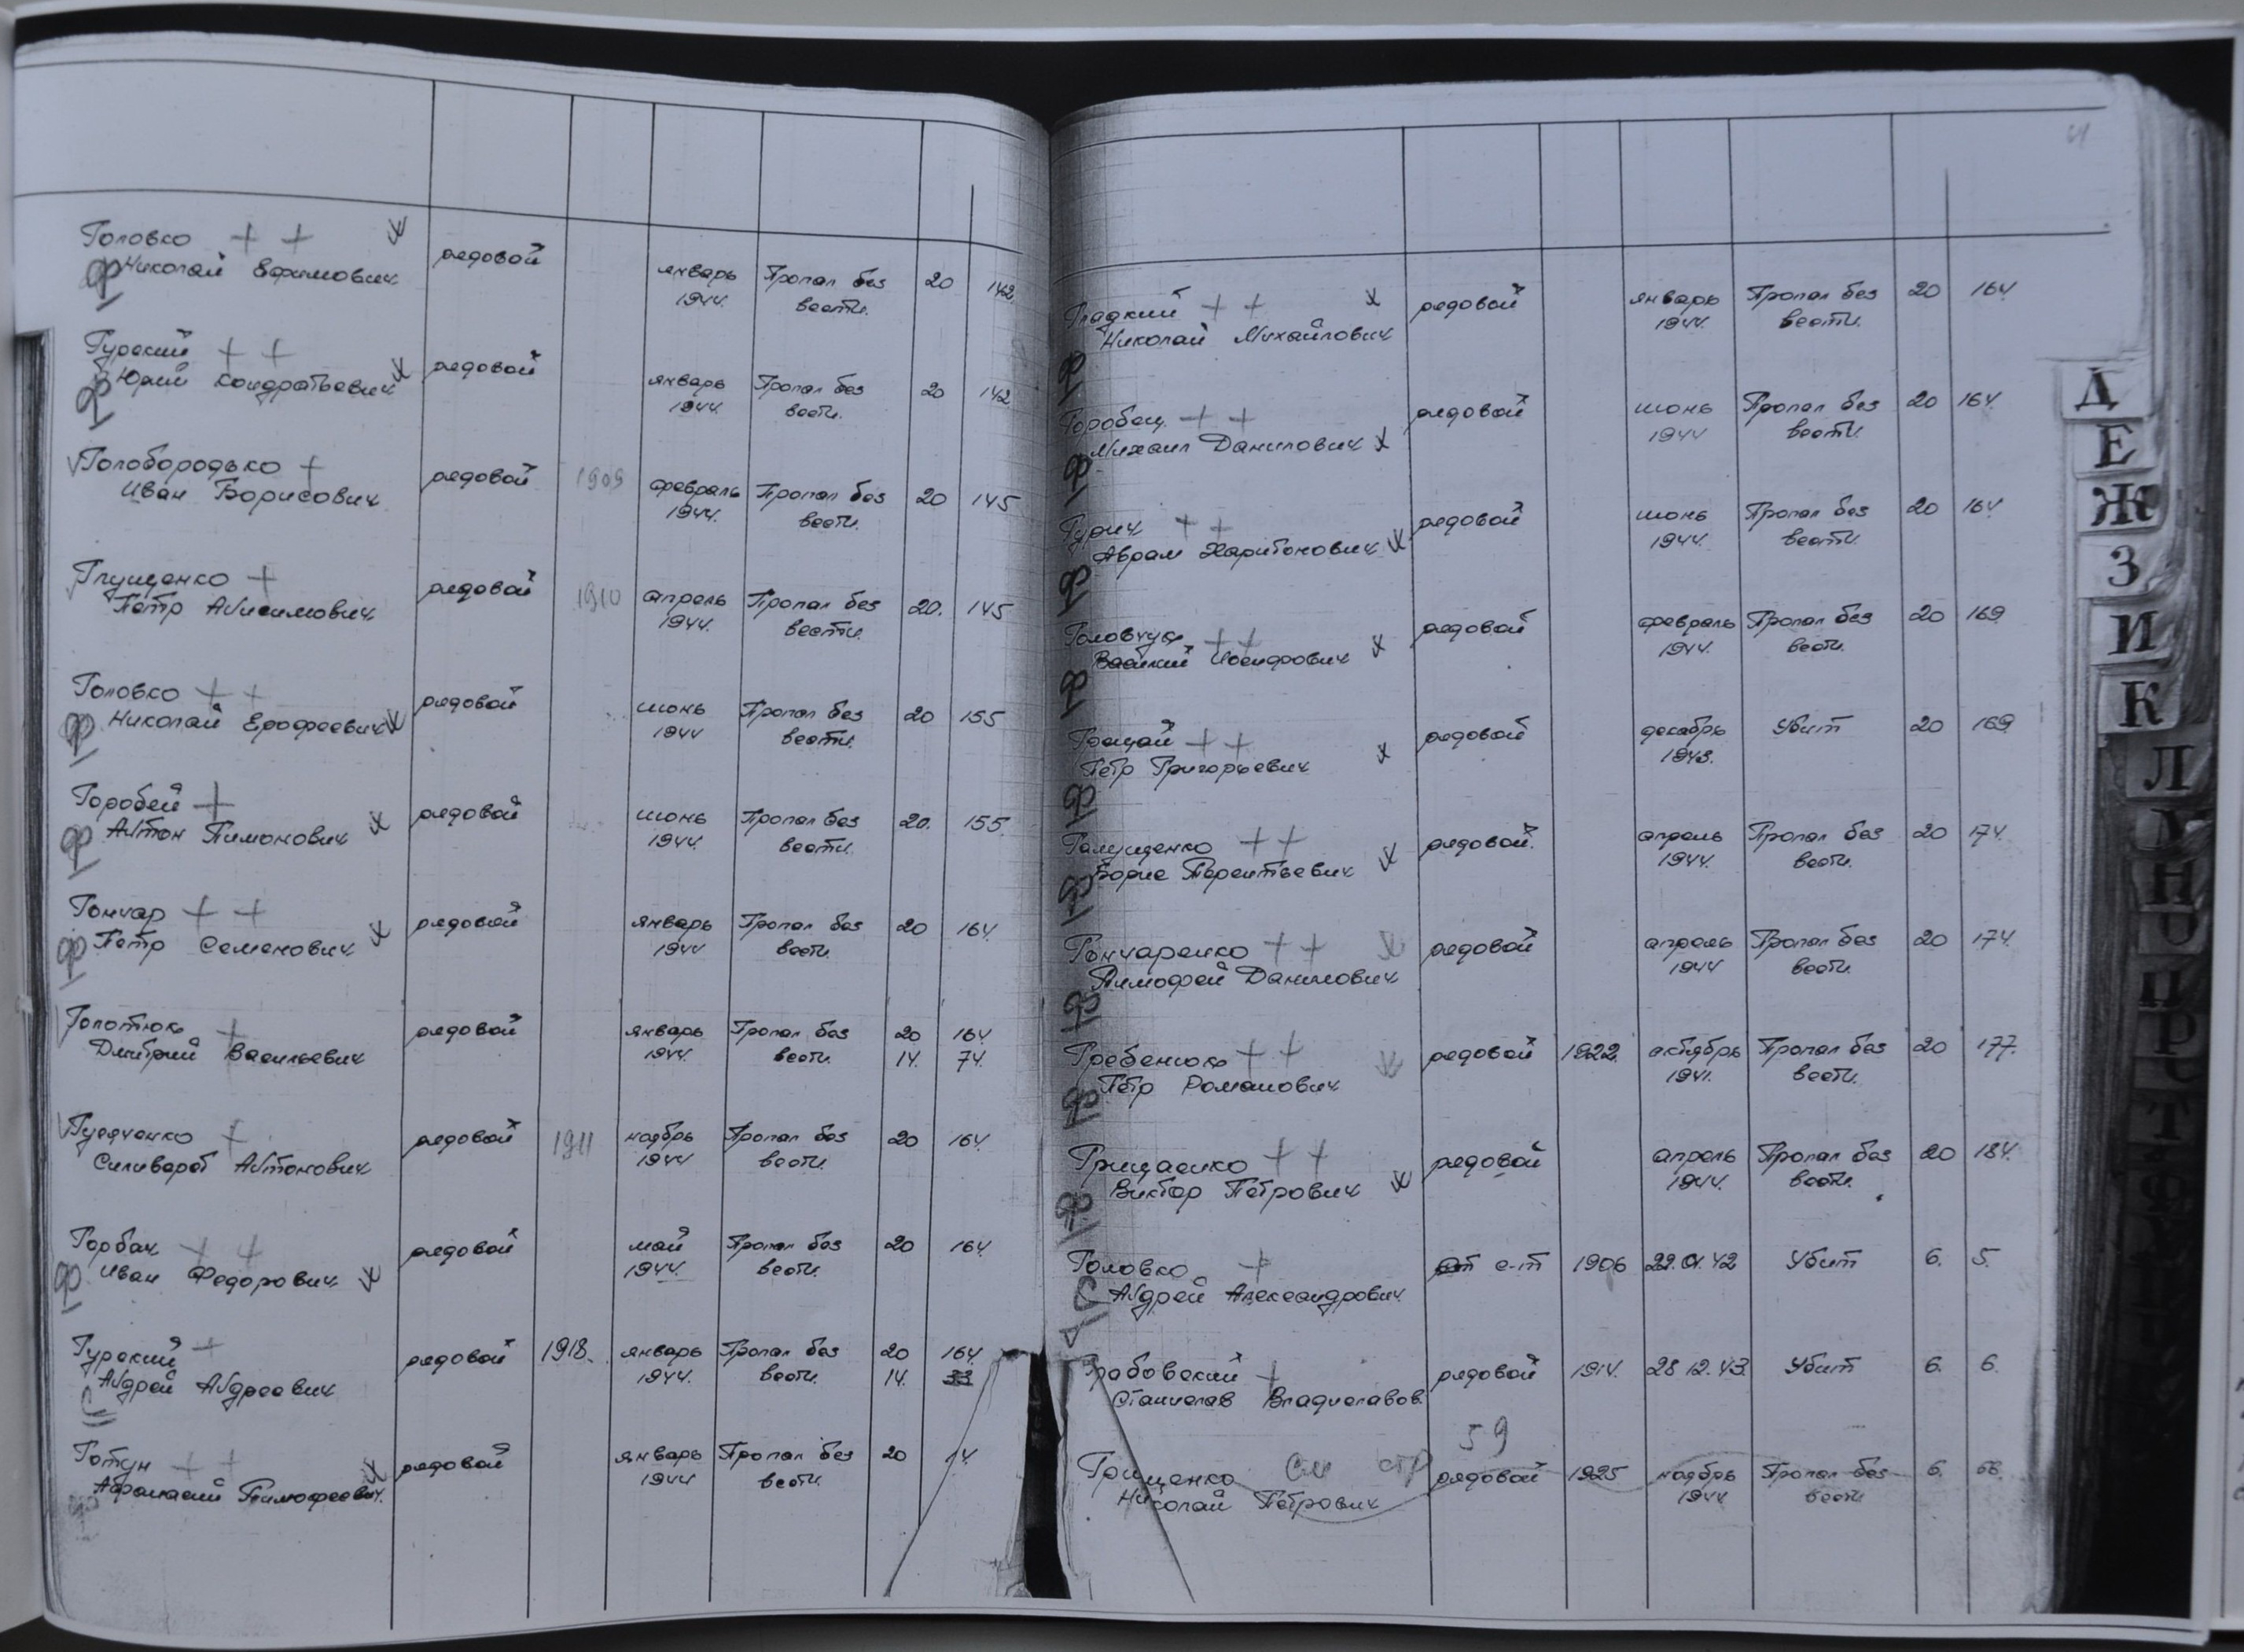 Головко ++ рядовой январь Пропал без 20 142.
Ф Николай Ефимович 1944. вести.
Гурский ++ рядовой январь Пропал без 20 142
Ф Юрий Кондратьевич 1944. вести.
Голобородько + рядовой 1909 февраль Пропал без 20 145
Иван Борисович 1944. вести.
Глущенко + рядовой 1910 апрель Пропал без 20. 145
Петр Анисимович 1944. вести.
Головко ++ рядовой июнь Пропал без 20 155
Ф Николай Ерофеевич 1944 вести.
Горобей + рядовой июнь Пропал без 20. 155
Ф Антон Тимонович 1944. вести.
Гончар ++ рядовой январь Пропал без 20 164.
Ф Петр Семенович 1944 вести.
Голотюк + рядовой январь Пропал без 20 164.
Дмитрий Васильевич 1944. вести. 14. 74.
+ рядовой 1911 ноябрь Пропал без 20 164.
Антонович 1944 вести.
Горбач ++ рядовой май Пропал без 20 164
Ф Иван Федорович 1944. вести.
Гурский + рядовой 1918. январь Пропал без 20 164.
Андрей Андреевич 1944. вести. 14. 33
Готун ++ рядовой январь Пропал без 20
Афанасий Тимофеевич. 1944 вести.
Гладкий ++ рядовой январь Пропал без 20 164.
Николай Михайлович 1944. вести.
Ф
Горобец ++ рядовой июнь Пропал без 20 164.
Михаил Данилович 1944 вести.
Ф
Гурич ++ рядовой июнь Пропал без 20 164
Аврам Харитонович 1944. вести.
Ф
Головчук ++ рядовой февраль Пропал без 20 169.
Василий Иосифович 1944. вести.
Ф
++ рядовой декабрь Убит 20 169.
Петр Григорьевич 1943.
Ф
Галущенко ++ рядовой. апрель Пропал без 20 174.
Борис Терентьевич 1944. вести.
Ф
Гончаренко ++ рядовой апрель Пропал без 20 174.
Тимофей Данилович 1944 вести.
Ф
Гребенюк ++ рядовой 1922. октябрь Пропал без 20 177.
Ф Петр Романович 1941. вести.
Грицаенко ++ рядовой апрель Пропал без 20 184.
Виктор Петрович 1944. вести.
Ф
Головко + с-т 1906 22.01.42 Убит 6. 5.
С Андрей Александрович
Грабовский + рядовой 1914. 28 12.43. Убит 6. 6.
Станислав Владиславов.
см стр 59
Грищенко рядовой 1925 ноябрь Пропал без 6. 66.
Николай Петрович 1944 вести
Д
Е
Ж
З
И
К
Л
М
Н
О
П
Р
С
Т